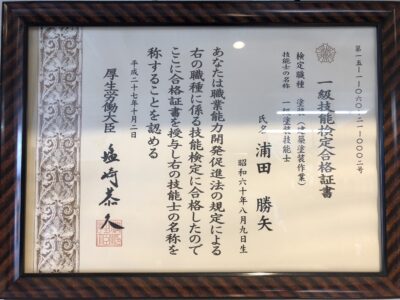 第一五-一-〇六〇-二一-〇〇〇二号
一級技能検定合格証書
検定職種 塗装(建築塗装作業)
技能士の名称 一級塗装技能士
氏名 浦田 勝矢
昭和六十年八月九日生
あなたは職業能力開発促進法の規定による
右の職種に係る技能検定に合格したので
ここに合格証書を授与し右の技能士の名称を
称することを認める
平成二十七年十月二日
厚生労働大臣 塩崎恭久